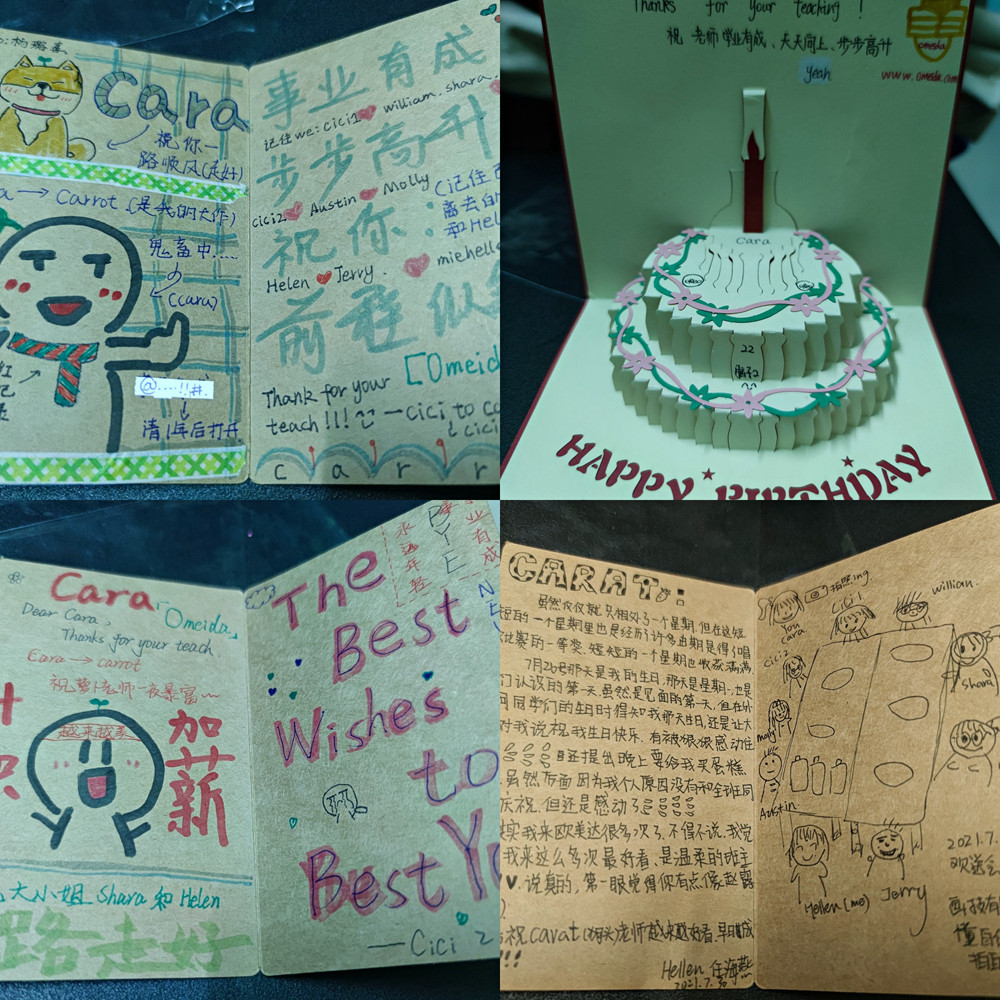 Cara
祝你一
路顺风(走好)
Carrot (是我的大作)
鬼畜中....
(cara)
@....!!#.
清1年后打开
事业有成
记住we:cici1 William.shara.
步步高升
cici2 Austin Molly
祝你:
Helen Jerry.
前程似
[Omeida
Thank for your
teach!!! ^^ —cici to
c a r r
Thanks for your teaching !
祝 老师学业有成、天天向上、步步高升
yeah
omeida
www.omeida.com
Cara
22
HAPPY BIRTHDAY
Cara「Omeida」
Dear Cara,
Thanks for your teach
Cara → carrot
祝萝卜老师一夜暴富~
越来越美
加薪
大小姐 Shara 和 Helen
路走好
永远年轻
业有成
BYE
The
Best
Wishes
to
Best
—Cici 2
CARAT:
虽然仅仅就只相处了一个星期,但在这短
短的一个星期里也是经历许多曲折是得了唱
比赛的一等奖,短短的一个星期也收获满满
7月26号那天是我的生日,那天是星期一,也是
们认识的第一天,虽然是见面的第一天,但在外
同同学们的生日时得知我那天生日,还是让大
对我说祝我生日快乐,有被狠狠感动住
且还提出晚上要给我买蛋糕
虽然后面因为我个人原因没有和全班同
庆祝,但还是感动了
实我来欧美达很多次了,不得不说,我觉
我来这么多次最好看、是温柔的班主
说真的,第一眼觉得你有点像赵露
祝carat(胡萝)老师越来越好看,早日
!!!
Hellen 任海燕
2021.7.30
拍照ing
You
cara
cici1
William.
cici2
shara
molly
Austin
Hellen(me)
Jerry
2021.7.
欢送会